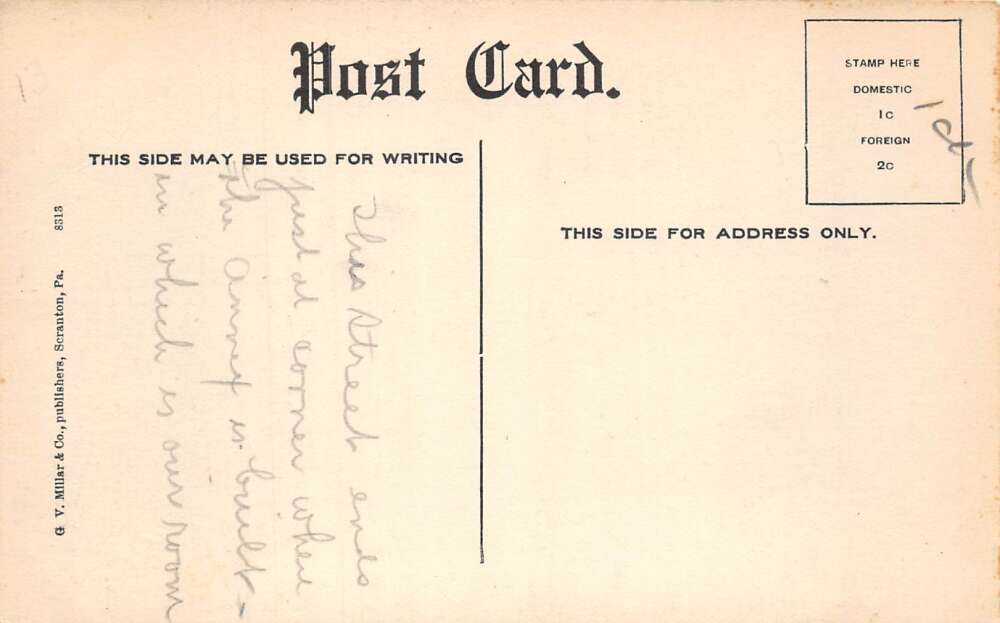 Post Card.
THIS SIDE MAY BE USED FOR WRITING
This street ends
just at corner where
the annex is built -
in which is our room
G. V. Millar & Co., publishers, Scranton, Pa. 8313
STAMP HERE
DOMESTIC
1C
FOREIGN
2C
THIS SIDE FOR ADDRESS ONLY.